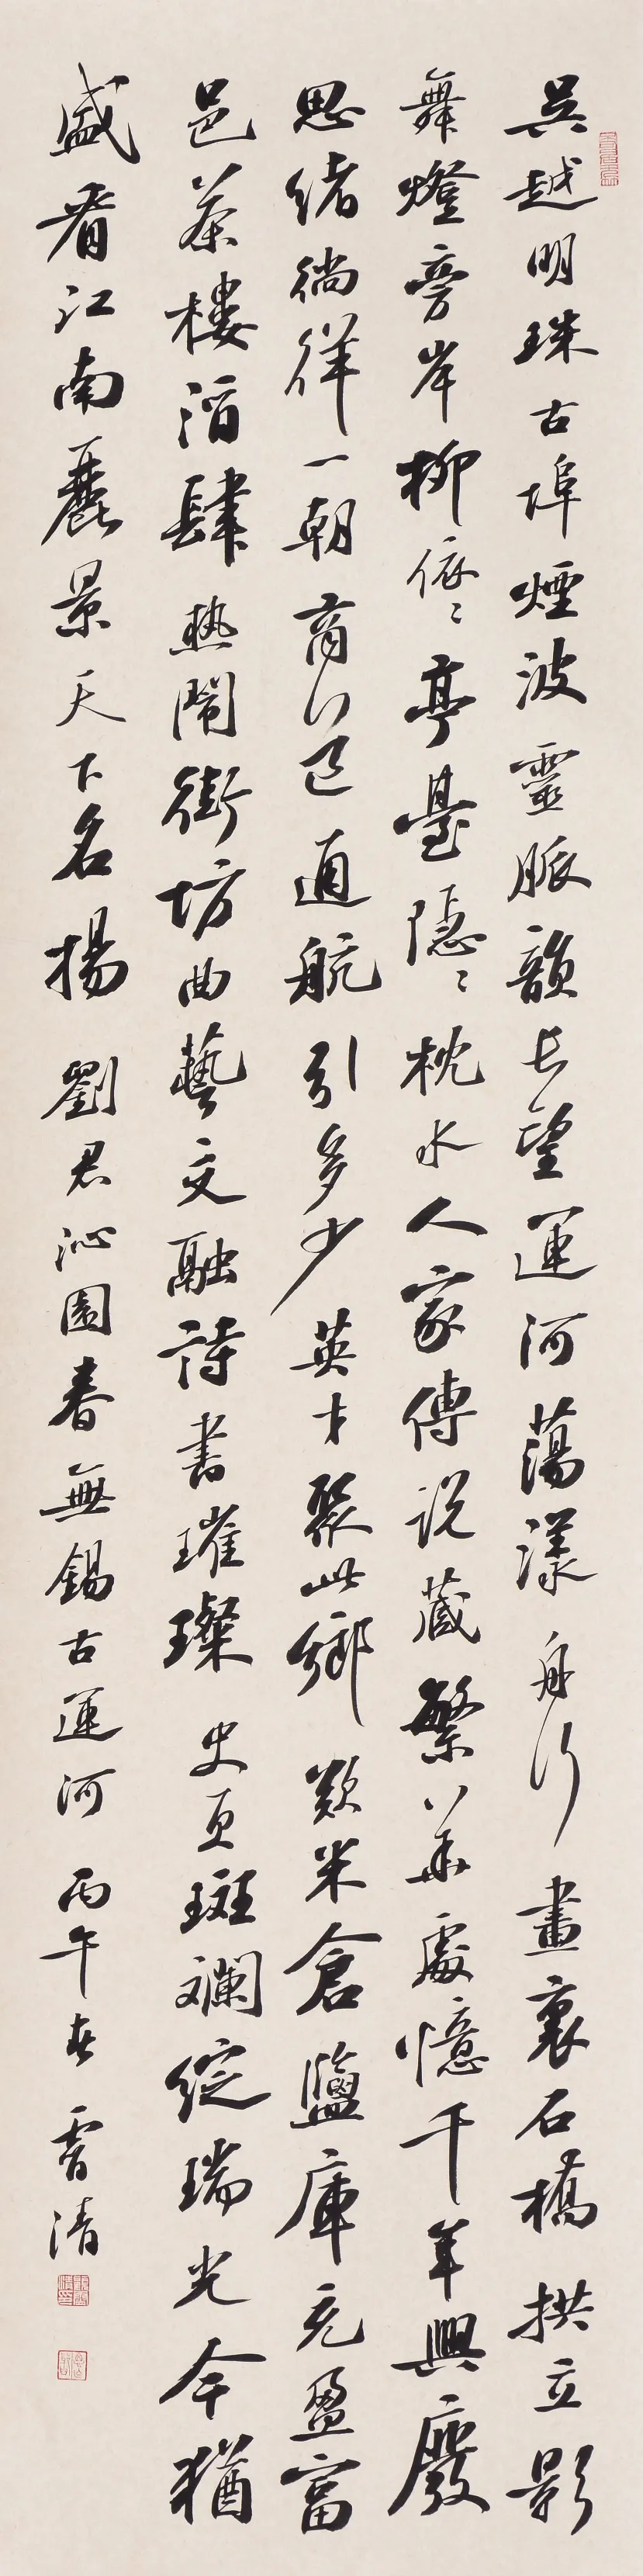 吳越明珠古埠煙波靈脈韻長望運河蕩漾舟行畫裏石橋拱立影
舞燈旁岸柳依〻亭臺隱〻枕水人家傳说藏繁華處憶千年興廢
思緒徜徉一朝商行已通航引多少英才聚此鄉歎米倉鹽庫充盈富
邑茶樓酒肆熱鬧街坊曲藝文融詩書璀璨史頁斑斕綻瑞光今猶
盛看江南麗景天下名揚 劉君沁園春無錫古運河 丙午春 雪清